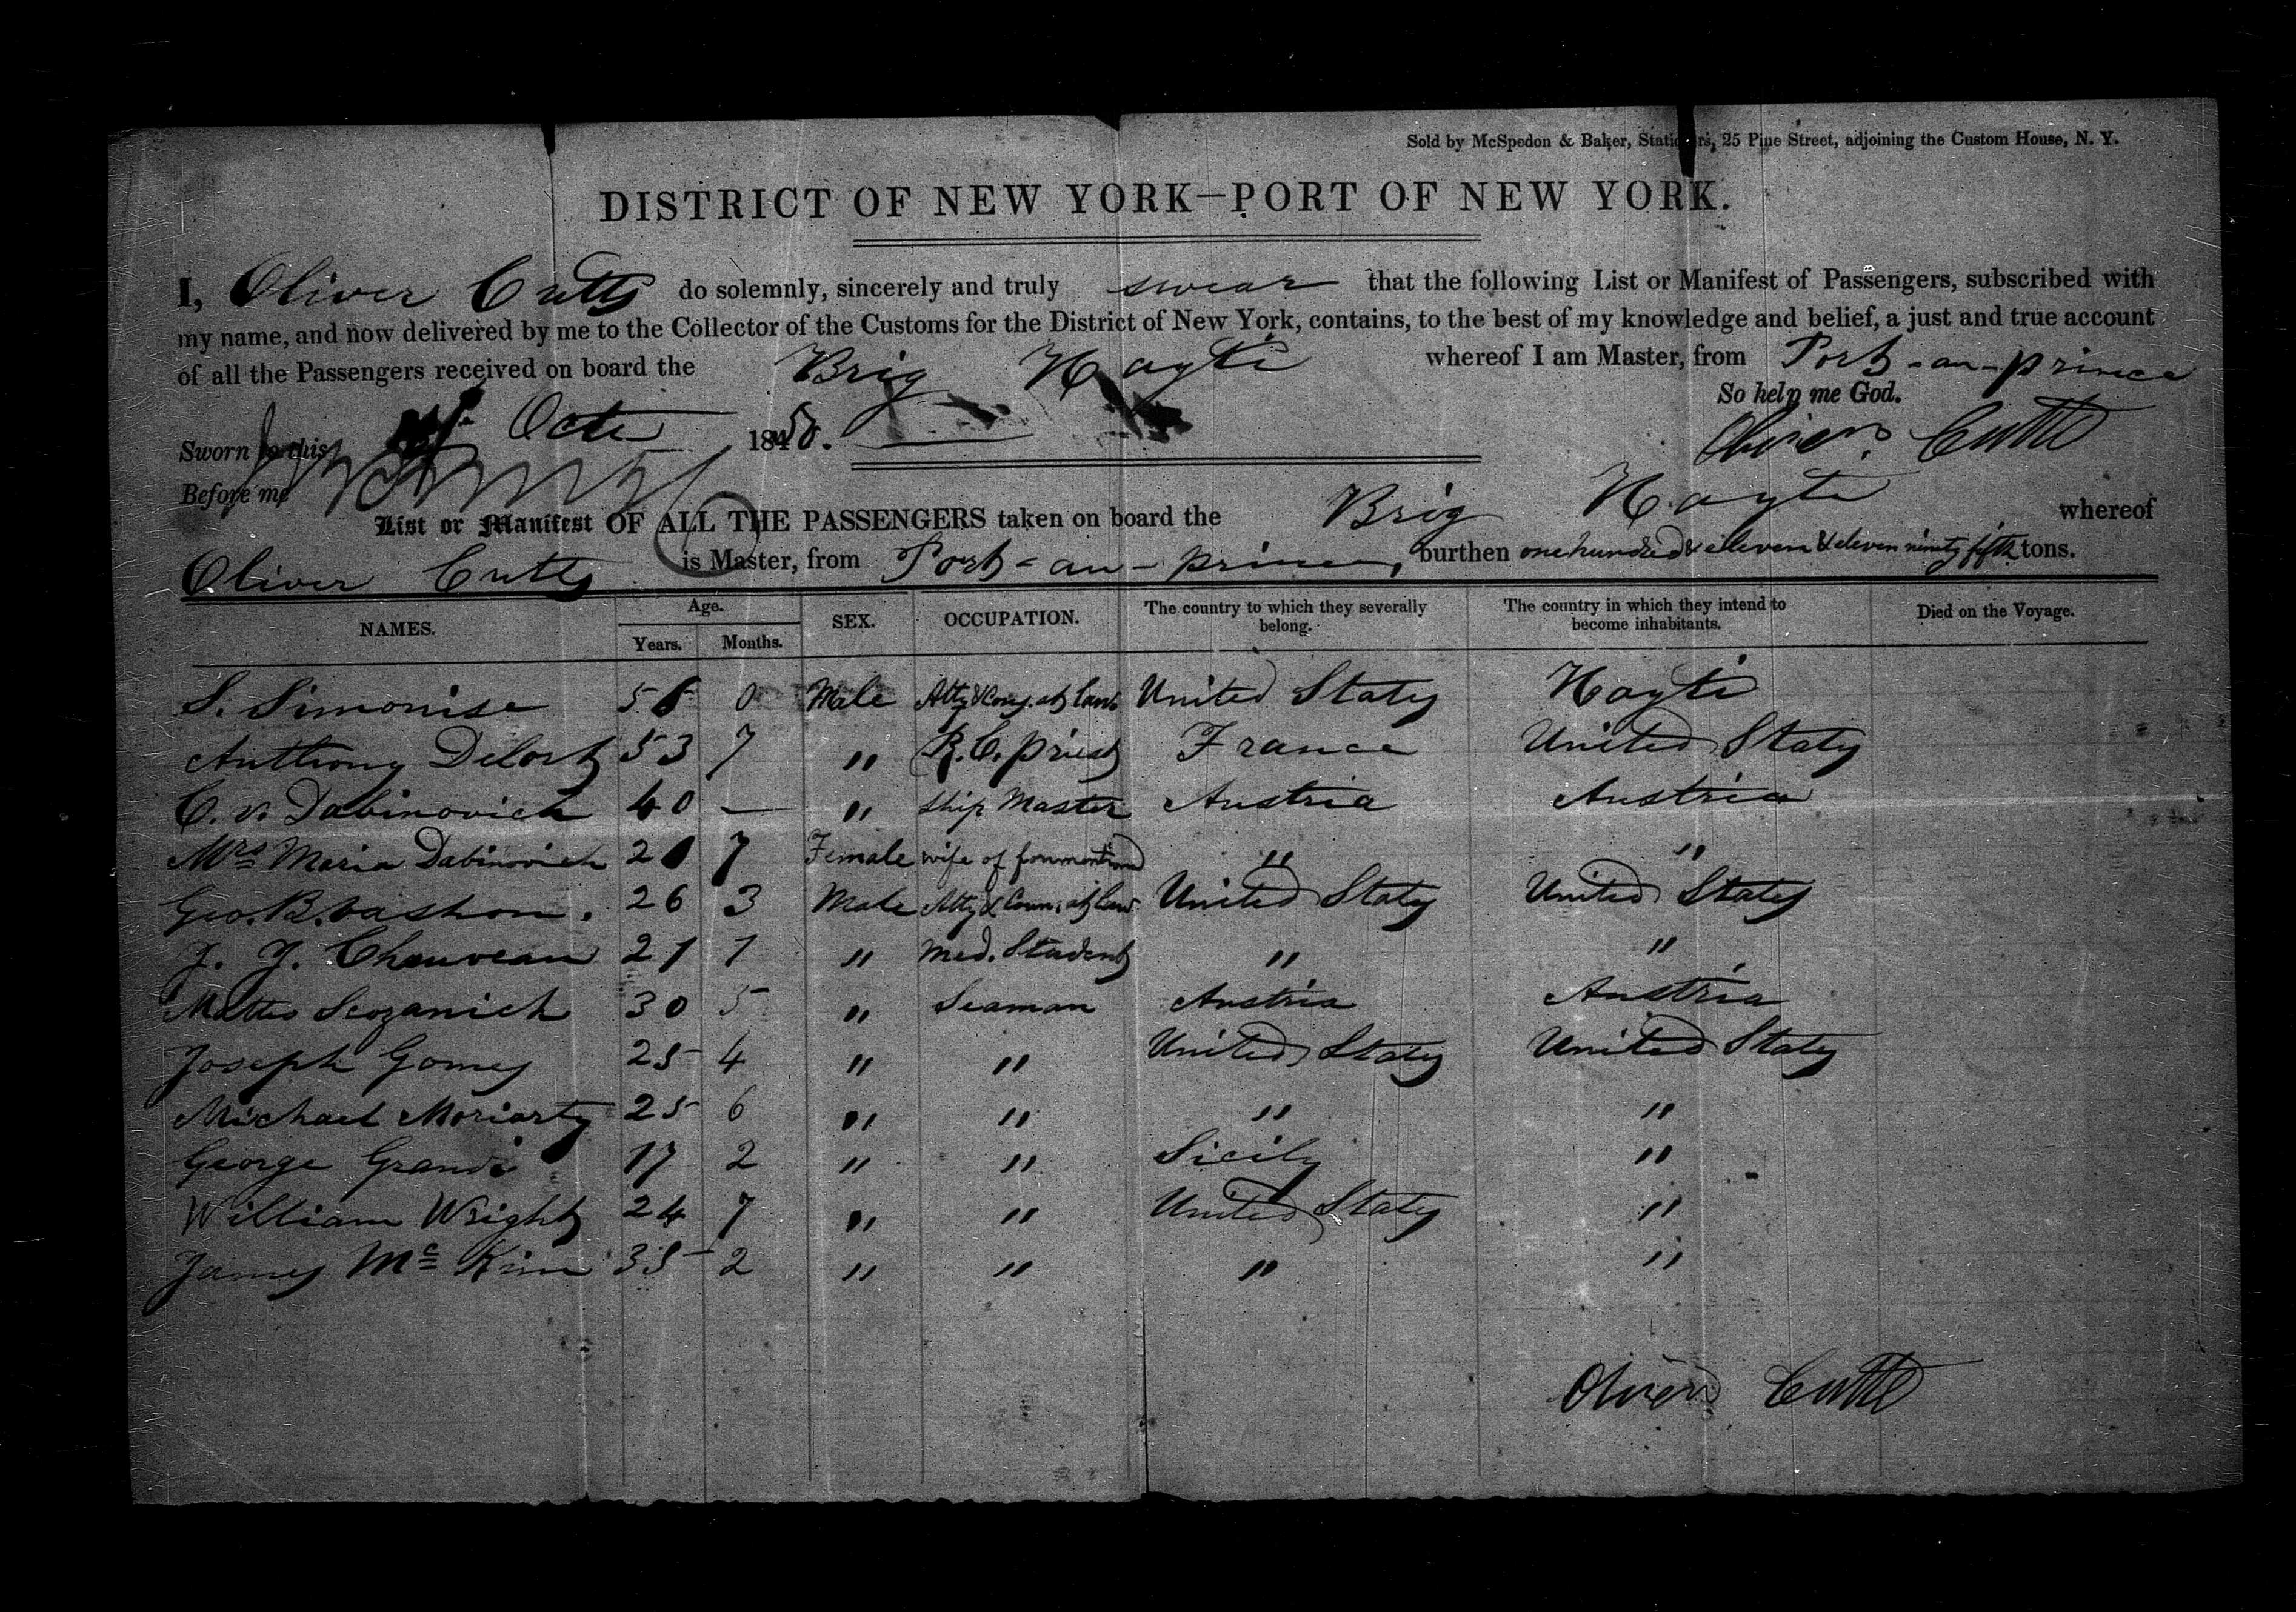 Sold by McSpedon & Baker, Stationers, 25 Pine Street, adjoining the Custom House, N. Y.
DISTRICT OF NEW YORK—PORT OF NEW YORK.
I, Oliver Cutts do solemnly, sincerely and truly swear that the following List or Manifest of Passengers, subscribed with
my name, and now delivered by me to the Collector of the Customs for the District of New York, contains, to the best of my knowledge and belief, a just and true account
of all the Passengers received on board the Brig Hayti whereof I am Master, from Port-au-prince
So help me God.
Sworn to this Octr 1850.
Oliver Cutts
Before me
List or Manifest OF ALL THE PASSENGERS taken on board the Brig Hayti whereof
Oliver Cutts is Master, from Port-au-prince, burthen one hundred & eleven & eleven ninety fifth tons.
NAMES. Age. Years. Months. SEX. OCCUPATION. The country to which they severally belong. The country in which they intend to become inhabitants. Died on the Voyage.
S. Simonise 0 Male Atty & Coun. at law United States Hayti
Anthony Delort 53 7 " R.C. priest France United States
C. v. Dabinovich 40 — " Ship Master Austria Austria
Mrs Maria Dabinovich 7 Female wife of " "
Geo. B. Vashon. 26 3 Male Atty & Coun. at law United States United States
J. J. Chauveau 21 1 " Med. Student " "
Matteo Scozanich 30 5 " Seaman Austria Austria
Joseph Gomes 25 4 " " United States United States
Michael Moriarty 25 6 " " " "
George Grandi 17 2 " " Sicily "
William Wright 24 7 " " United States "
James Mc Kim 35 2 " " " "
Oliver Cutts